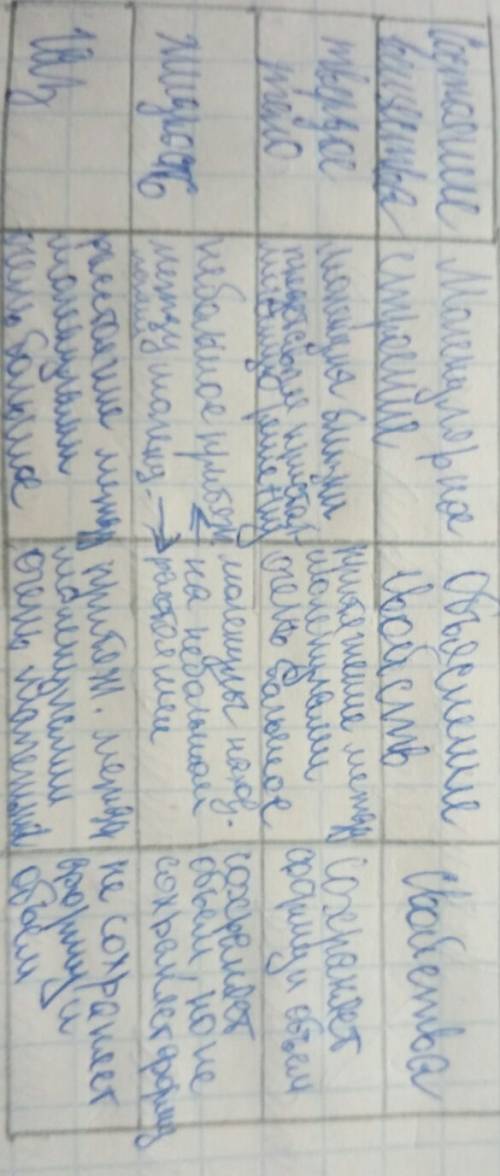 Состояние
вещества
Молекулярное
строение
Объяснение
свойств
Свойства
твердое
тело
молекулы близки
притяжение между
молекулами
очень большое
Сохраняет
форму и объем
жидкость
небольшое притяж
между молекул.
молекулы наход.
на небольшом
расстоянии
сохраняет
объем но не
сохраняет форму
газ
расстояние между
молекулами
очень большое
притяж. между
молекулами
очень маленький
не сохраняет
форму и
объем